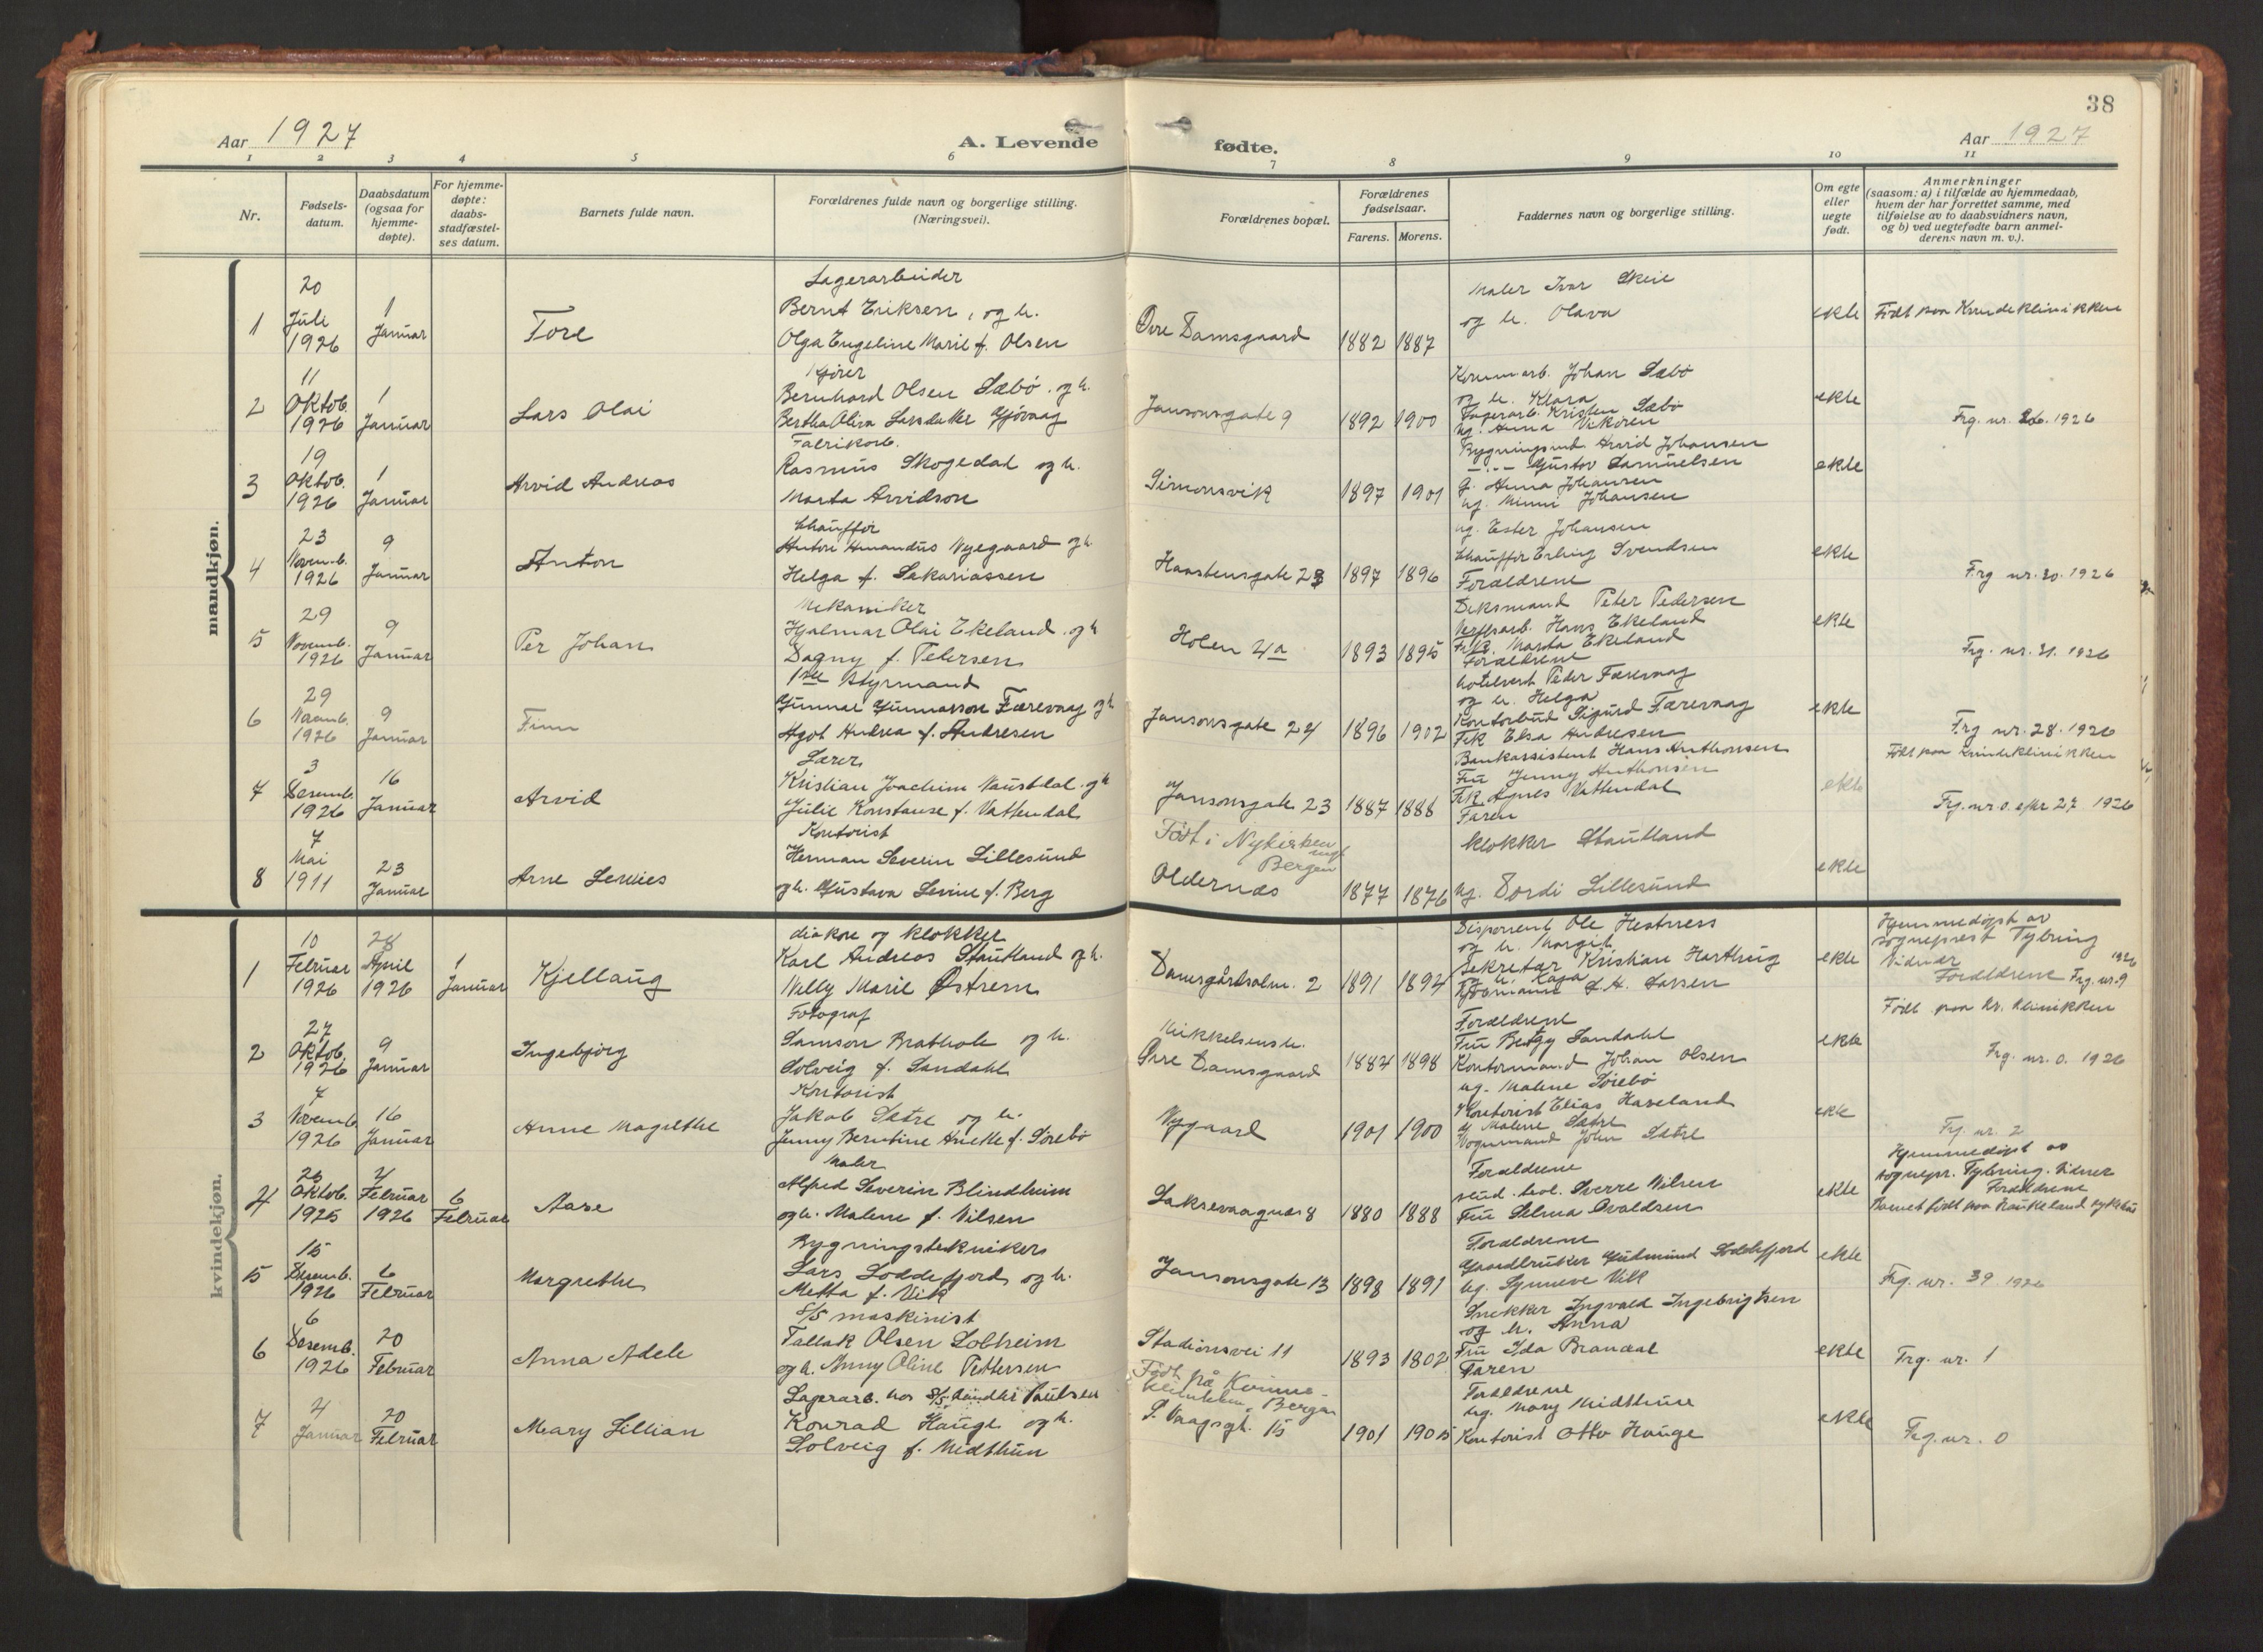 38
Aar 1927
A. Levende
fødte.
Aar 1927
1 2 3 4 5 6 7 8 9 10 11
Nr.
Fødsels-
datum.
Daabsdatum
(ogsaa for
hjemme-
døpte).
For hjemme-
døpte:
daabs-
stadfæstel-
ses datum.
Barnets fulde navn.
Forældrenes fulde navn og borgerlige stilling.
(Næringsvei).
Forældrenes bopæl.
Forældrenes
fødselsaar.
Farens. Morens.
Faddernes navn og borgerlige stilling.
Om egte
eller
uegte
født.
Anmerkninger
(saasom: a) i tilfælde av hjemmedaab,
hvem der har forrettet samme, med
tilføielse av to daabsvidners navn,
og b) ved uegtefødte barn anmel-
derens navn m. v.).
mandkjøn.
1
20
Juli
1926
1
Januar
Tore
Lagerarbeider
Bernt Eriksen, og h.
Olga Engeline Marie f. Olsen
Øvre Damsgaard
1882 1887
Maler Ivar Skeie
og h. Olava
ekte
Født paa Kvindeklinikken
2
11
Oktob.
1926
1
Januar
Lars Olai
Kjører
Bernhard Olsen Sæbø. og h.
Bertha Olina Larsdatter Gjøvaag
Jansonsgate 9
1892 1900
Kommarb. Johan Sæbø
og h. Klara
Lagerarb. Kristen Sæbø
ug. Anna Vikøren
ekte
Frg. nr. 26. 1926
3
19
Oktob.
1926
1
Januar
Arvid Andreas
Fabrikarb.
Rasmus Skogedal og h.
Marta Arvidson
Simonsvik
1897 1901
Bygningssnd. Arvid Johansen
— . — Gustav Samuelsen
g. Anna Johansen
ug. Minni Johansen
ekte
4
23
Novemb.
1926
9
Januar
Anton
Chauffør
Anton Amandus Nygaard og h.
Helga f. Sakariassen
Haastensgate 23
1897 1896
ug. Ester Johansen
Chauffør Erling Svendsen
Forældrene
ekte
Frg nr. 30. 1926
5
29
Novemb.
1926
9
Januar
Per Johan
Mekaniker
Hjalmar Olai Ekeland. og h
Dagny f. Petersen
Holen 4a
1893 1895
Deksmand Peter Pedersen
Verftsarb. Hans Ekeland
Frk. Marta Ekeland
Forældrene
ekte
Frg. nr. 31. 1926
6
29
Novemb.
1926
9
Januar
Finn
1ste Styrmand
Gunnar Gunnarson Færevaag og h
Agot Andrea f. Andresen
Jansonsgate 24
1896 1902
Hotelvert Peder Færevaag
og h. Helga
Kontorbud Sigurd Færevaag
Frk Elsa Andresen
ekte
Frg nr. 28. 1926
7
3
Desemb.
1926
16
Januar
Arvid
Lærer
Kristian Joachim Naustdal. og h
Julie Konstanse f. Vattendal
Jansonsgate 23
1887 1888
Bankassistent Hans Anthonsen
Fru Jenny Anthonsen
Frk Agnes Vattendal
Faren
ekte
Født paa Kvindeklinikken
Frg. nr. 0. efter 27 1926
8
7
Mai
1911
23
Januar
Arne Servies
Kontorist
Herman Severin Lillesund
og h. Gustava Sevine f. Berg
Født i Nykirken
sogn
Bergen
Oldernæs
1877 1876
Klokker Stautland
ug. Dordi Lillesund
ekte
kvindekjøn.
1
10
Februar
1926
28
April
1926
1
Januar
Kjellaug
diakon og klokker
Karl Andreas Stautland og h.
Nelly Marie Østrem
Damsgårdsalm. 2
1891 1892
Disponent Ole Hestnæs
og h. Margit
Sekretær Kristian Harthug
og h. Kaja
Kjøbmann L. A. Larsen
ekte
Hjemmedøpt av
sogneprest Tybring
Vidner
Forældrene Frg. nr. 9
1926
2
27
Oktob.
1926
9
Januar
Ingebjørg
Fotograf
Samson Brathole og h.
Solveig f. Sandahl
Mikkelsensh.
Øvre Damsgaard
1884 1898
Forældrene
Fru Betzy Sandahl
Kontormand Johan Olsen
ekte
Født paa Kv. klinikken
Frg. nr. 0. 1926
3
7
Novemb.
1926
16
Januar
Anne Magrethe
Kontorist
Jakob Sætre og h.
Jenny Berntine Anette f. Sørebø
Nygaard
1901 1900
ug. Malene Sørebø
Kontorist Elias Haveland
g Malene Sætre
Vognmand John Sætre
ekte
Frg. nr. 2
4
23
Oktob.
1925
4
Februar
1926
6
Februar
Aase
Maler
Alfred Severin Blindheim
og h. Malene f. Nilsen
Laksevaagnes 8
1880 1888
Forældrene
stud. teol. Sverre Nilsen
Fru Selma Evaldsen
ekte
Hjemmedøpt av
sognepr. Tybring. Vidner
Forældrene
Barnet født paa Haukeland sykehus
5
15
Desemb.
1926
6
Februar
Margrethe
Bygningstekniker
Lars Loddefjord og h.
Metta f. Vik
Jansonsgate 13
1898 1891
Forældrene
Gaardbruker Gudmund Loddefjord
ug. Synneve Vik
ekte
Frg. nr. 39. 1926
6
6
Desemb.
1926
20
Februar
Anna Adele
S/S maskinist
Tallak Olsen Solheim
og h. Anny Oline Pettersen
Stadionsvei 11
1893 1802
Snekker Ingvald Ingebrigtsen
og h. Anna
Fru Ida Brandal
Faren
ekte
Frg. nr. 1
7
4
Januar
20
Februar
Mary Lillian
Lagerarb. hos Paulsen
Konrad Hauge og h.
Solveig f. Midthun
Født på Kvinne-
klinikken, Bergen
P. Vaagsgt. 15
1901 1905
Forældrene
ug. Mary Midthun
Kontorist Otto Hauge
ekte
Frg. nr. 0